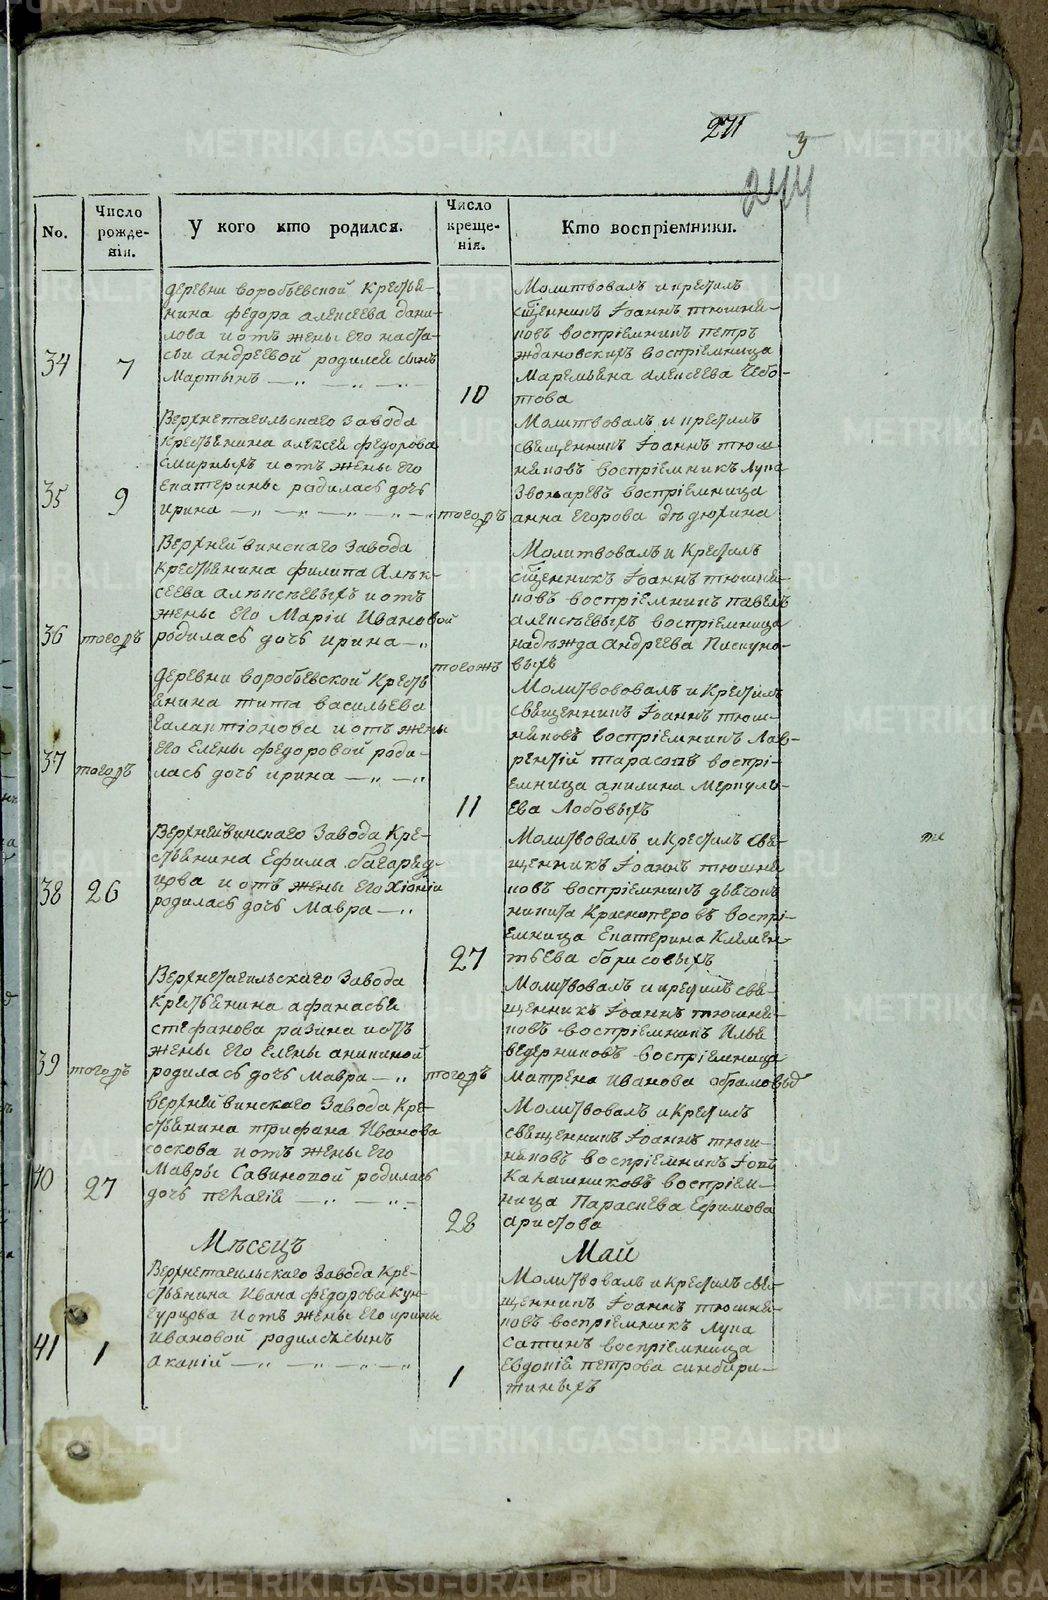 271
3
244
No.
Число рожде-нія.
У кого кто родился.
Число креще-нія.
Кто воспріемники.
34
7
деревни воробьевской Крестья-
нина федора алексеева дани-
лова и отъ жены его наста-
сьи андреевой родился сынъ
Мартынъ
10
Молитвовалъ и крестилъ
сщенникъ Іоаннъ тюшня-
ковъ воспріемникъ петръ
ждановскихъ воспріемница
Маремьяна алексеева Чебо-
това
35
9
Верхнетагильскаго Завода
крестьянина алексея федорова
смирныхъ и отъ жены его
екатерины радилась дочь
ирина
тогожъ
Молитвовалъ и крестилъ
священникъ Іоаннъ тюш
няковъ воспріемникъ Лупа
Звонаревъ воспріемница
анна Егорова дѣдюхина
36
тогожъ
Верхнейвинскаго Завода
крестьянина филипа Алѣк-
сеева алѣксѣевыхъ и отъ
жены его Маріи Ивановой
родилась дочь ирина
тогожъ
Молитвовалъ и Крестилъ
сщенникъ Іоаннъ тюшня-
ковъ воспріемникъ павелъ
алексѣевыхъ воспріемница
надѣжда андреева Пискуно-
выхъ
37
тогожъ
деревни воробьевской Кресть
янина тита васильева
галактіонова и отъ жены
его Елены федоровой роди-
лась дочь ирина
11
Молитвововалъ и Крестилъ
священникъ Іоаннъ тюш-
няковъ воспріемникъ Лав-
рентій тарасовъ воспрі-
емница акилина Меркуль-
ева Лобовыхъ
38
26
Верхнейвинскаго Завода Кре-
стьянина Ефима багаряд-
цова и отъ жены его Хіоніи
родилась дочь Мавра
27
Молитвовалъ и Крестилъ свя-
щенникъ Іоаннъ тюшня
ковъ воспріемникъ дьячокъ
никита Красноперовъ воспрі-
емница Екатерина Клемен-
тьева борисовыхъ
39
тогожъ
Верхнетагильскаго Завода
Крестьянина афанасья
стефанова разина и отъ
жены его елены аникиной
родилась дочь Мавра
тогожъ
Молитвовалъ и крестилъ свя-
щенникъ Іоаннъ тюшня-
ковъ воспріемникъ Илья
ведерниковъ воспріемница
Матрена иванова абрамовыхъ
40
27
верхнейвинскаго Завода Кре-
стьянина трифана Иванова
соскова и отъ жены его
Мавры Савиновой родилась
дочь пелагія
28
Молитвовалъ и Крестилъ
священникъ Іоаннъ тюш-
няковъ воспріемникъ Іовъ
Калашниковъ воспріем-
ница Параскева Ефимова
аристова
Мѣсецъ
Май
41
1
Верхнетагильскаго Завода Кре-
стьянина Ивана федорова Кун-
гурцова и отъ жены его ирины
ивановой родился сынъ
акакій
1
Молитвовалъ и Крестилъ свя-
щенникъ Іоаннъ тюшня-
ковъ воспріемникъ Лупа
Сатинъ воспріемница
Евдокія петрова синбири-
тиныхъ
METRIKI.GASO-URAL.RU